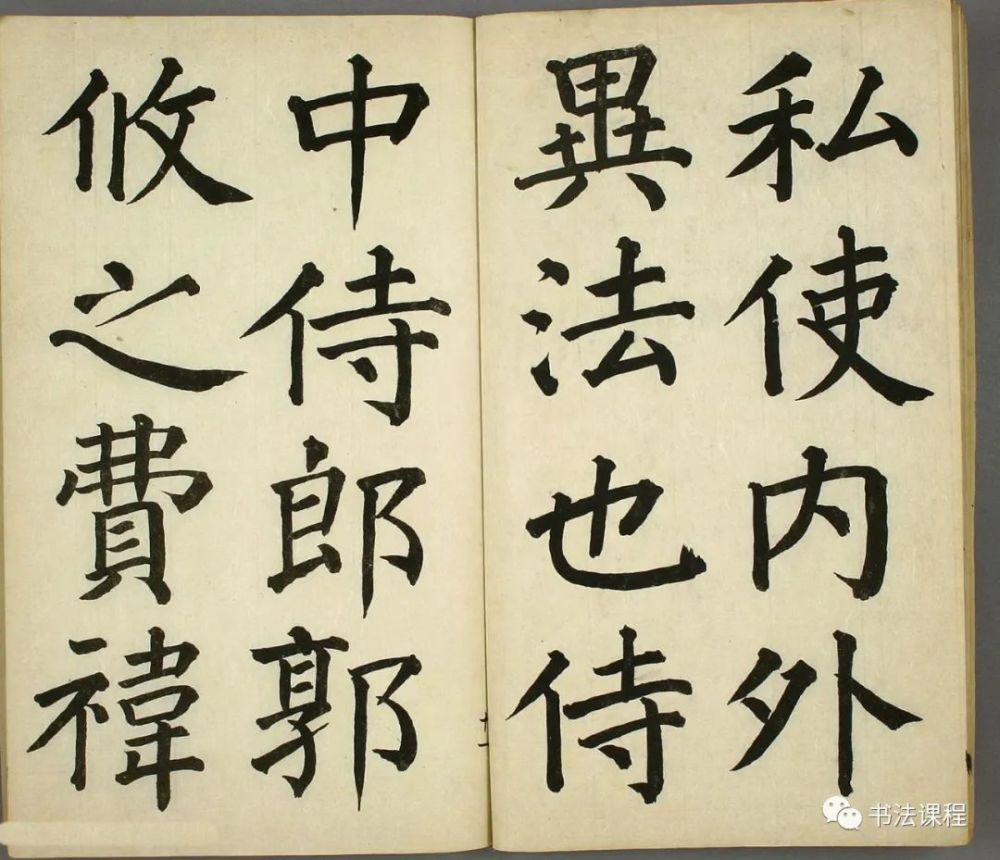 私使内外
異法也侍
中侍郎郭
攸之費禕
十一
书法课程